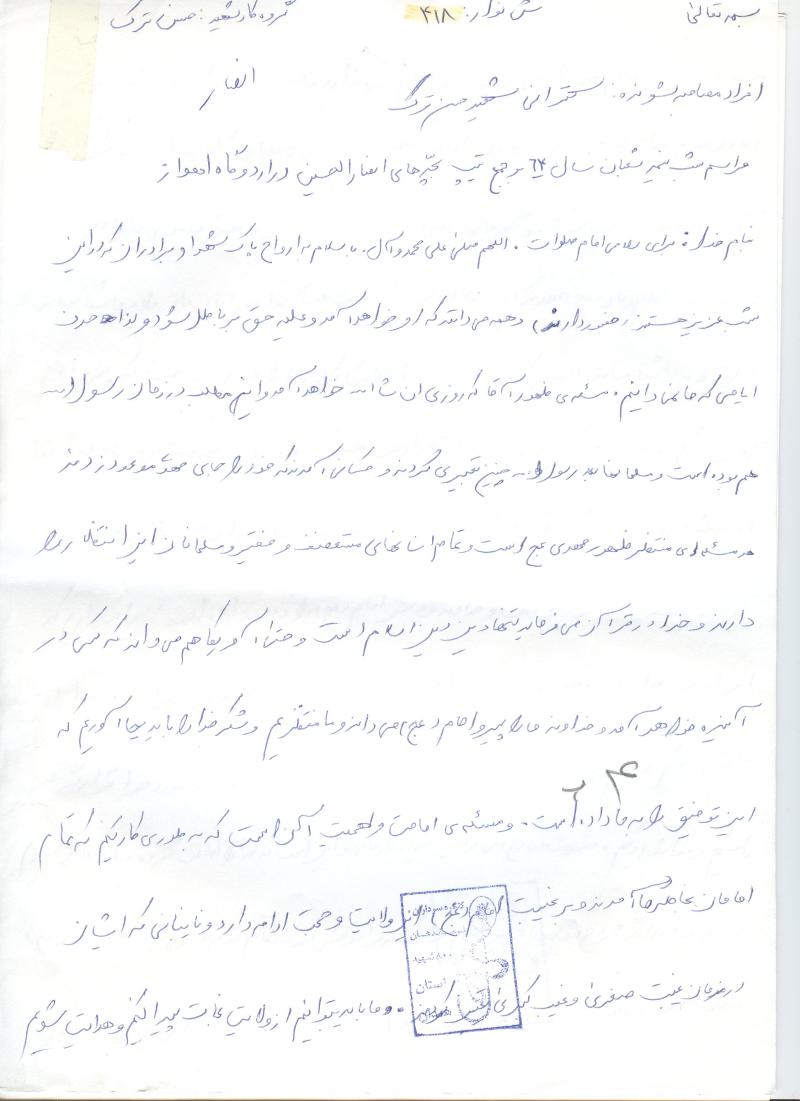 بسمه تعالی ش نوار: ۴۱۸ گروه کار شهید: حسن ترک
افراد مصاحبه شونده: سخنرانی شهید حسن ترک انصار
مراسم شب نیمه شعبان سال ۶۴ در جمع تیپ بچه‌های انصارالحسین در اردوگاه اهواز
بنام خدا برای سلامتی امام صلوات. اللهم صلی علی محمد و آل. با سلام به ارواح پاک شهدا و برادرانی که در این
شب عزیز هستند، حضور دارند و همه می‌دانند که او خواهد آمد و غلبه حق بر باطل شود و
که ما می‌دانیم. مسئله‌ی ظهور آقا که روزی ان شاء الله خواهد آمد و این مطلب در زمان رسول الله
هم بوده است و رسول الله چنین تعبیری کردند و کسانی آمدند که خود را جای مهدی موعود زدند
مسئله‌ای منتظر ظهور مهدی عج است و تمام انسانهای مستضعف و فقیر و مسلمانان این انتظار را
دارند و خدا در قرآن می‌فرماید تنها دین دین اسلام است و حتی آمریکا هم می‌داند که کسی در
آینده خواهد آمد و خداوند ما را پیرو امام (عج) می‌داند و ما منتظریم و شکر خدا را باید بجا آوریم که
این توفیق را به ما داده است. و مسئله‌ی امامت و اهمیت آن است که به طوری کار کنیم که تمام
امامان بخاطر ما آمدند و بر غیبت امام (عج) این ولایت و حجت ادامه دارد و نایبانی که ایشان
در زمان غیبت صغری و غیبت کبری کردند. و ما باید بتوانیم از ولایت نجات پیدا کنیم و هدایت شویم
استان
۴